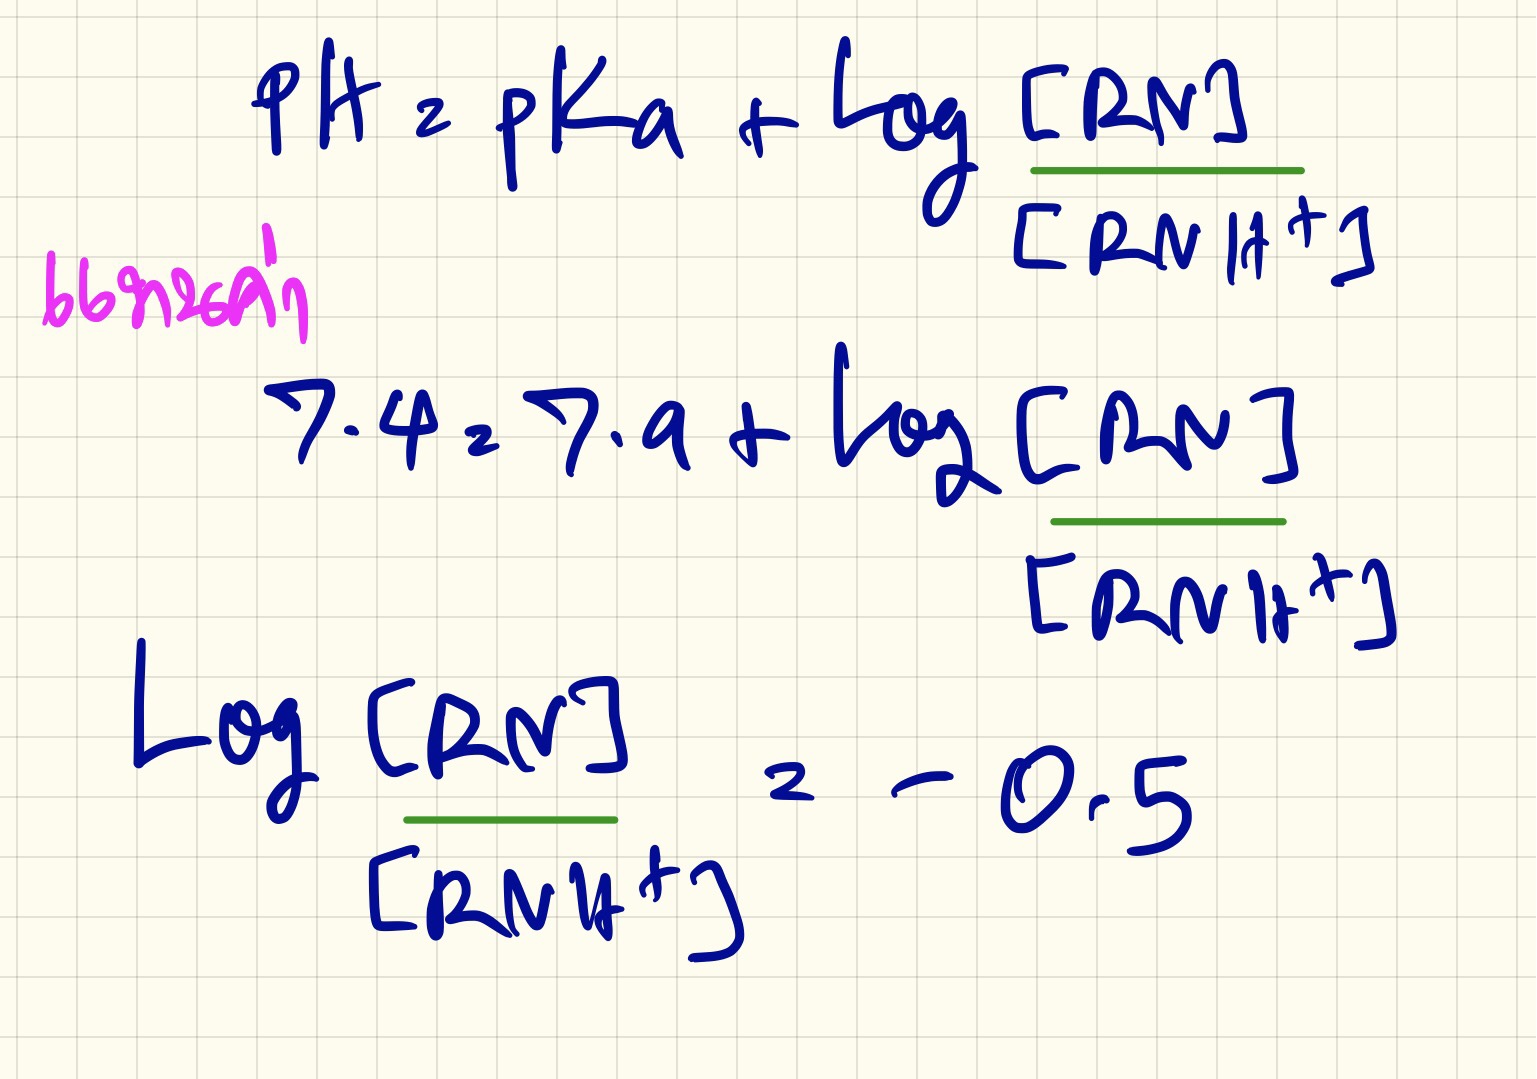 PH = pKa + Log [RN]
[RNH+]
แทนค่า
7.4 = 7.9 + Log [RN]
[RNH+]
Log [RN] = - 0.5
[RNH+]